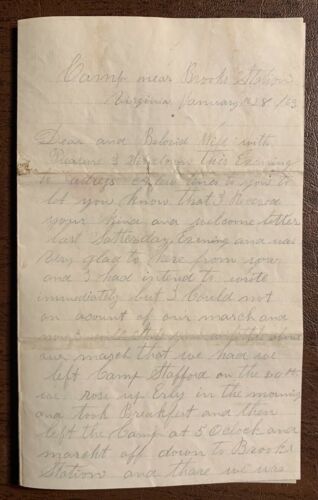 Camp near Brooks Station
Virginia January 28 /63
Dear and Beloved Wife with
Pleasure I this Evening
to adress a few lines to you to
let you know that I received
your kind and welcome letter
last Satterday Evening and was
very glad to here from you
and I had intend to write
immediately but I Could not
on acount of our march and
now I will you a little about
our march that we had we
left Camp Stafford on the 20th
we rose up Erly in the morning
and took Breakfast and then
left the Camp at 5 OClock and
marcht off down to Brooks
Station and thare we was